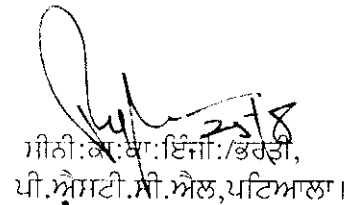 25/8
ਸੀਨੀ:ਕਾ:ਕਾ:ਇੰਜੀ:/ਭਰਤੀ,
ਪੀ.ਐਸਟੀ.ਸੀ.ਐਲ,ਪਟਿਆਲਾ।